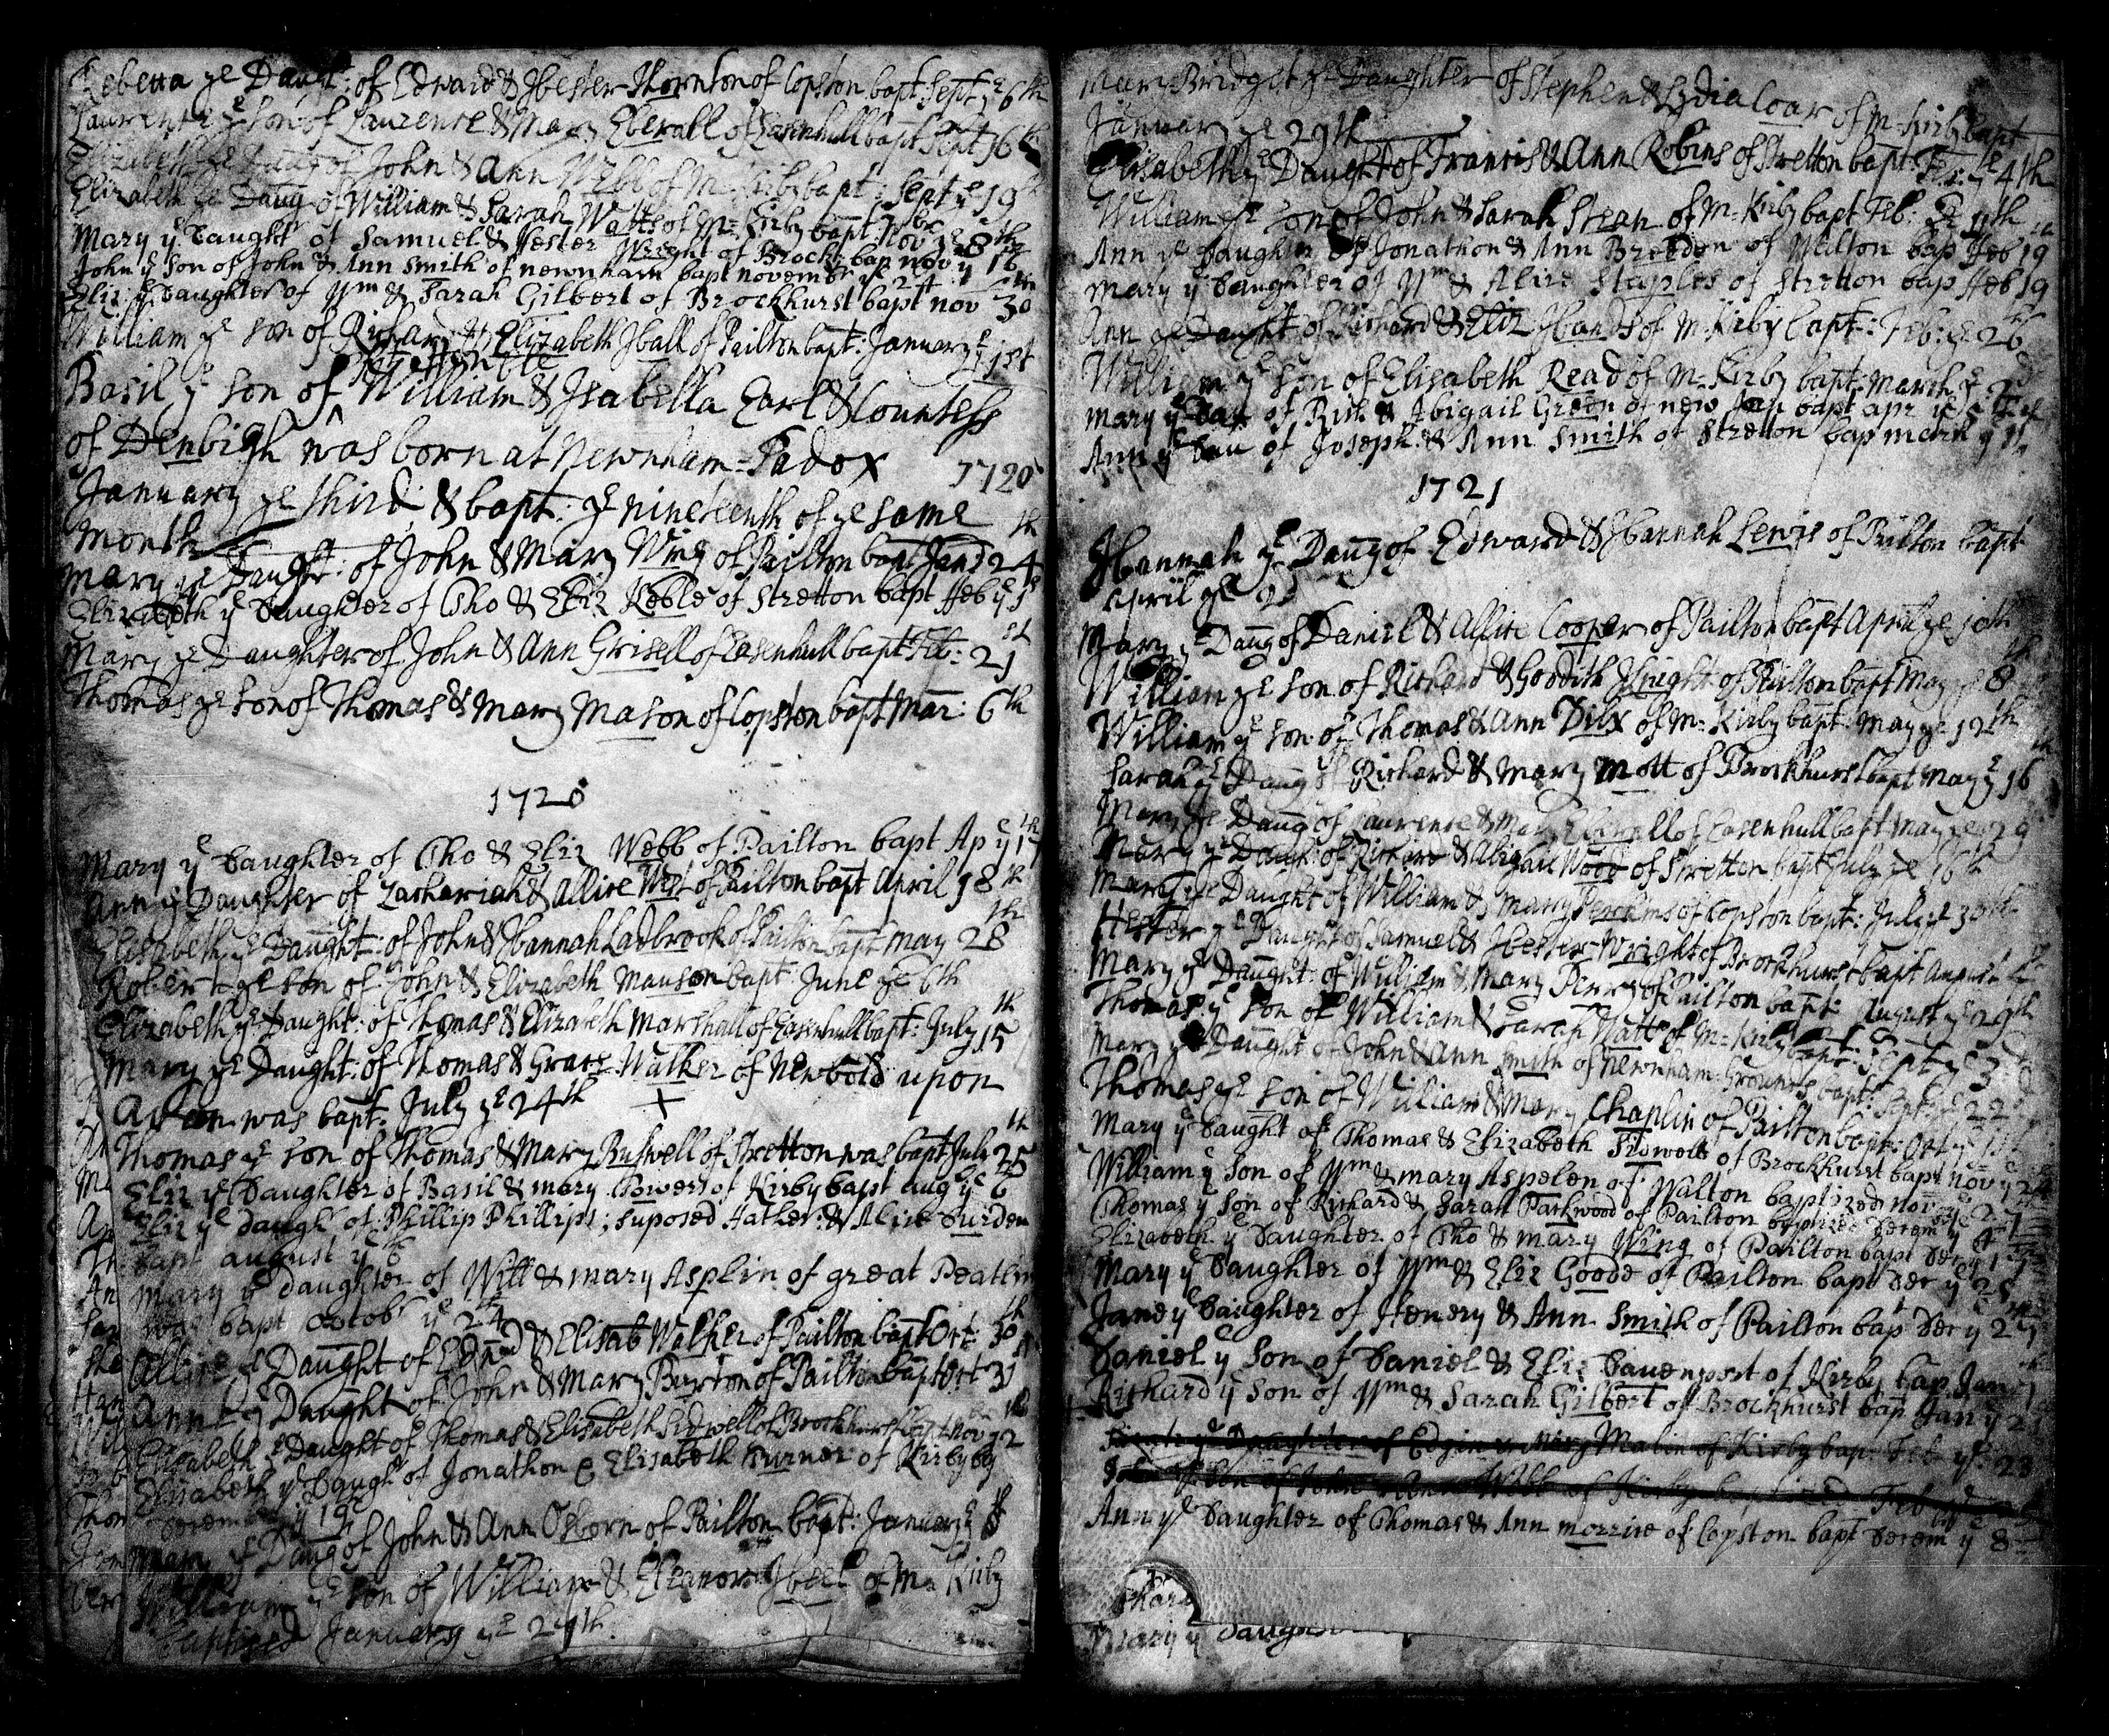 Rebecca ye Daught: of Edward & Hester Thornton of Copston bapt Sept ye 6th
Laurence ye Son of Laurence & Mary Eberall of Easenhull bapt Sept 16th
Elizabeth ye Daug of John & Ann Webb of M: Kirby bapt: Sept ye 19th
Elizabeth ye Daug of William & Sarah Watts of M: Kirby bapt
Mary ye Daught of Samuel & Hester Wright of Brock: bap nov ye 8th
John ye Son of John & Ann Smith of newnham bapt november ye
Eliz: ye Daughter of Wm & Sarah Gilbert of Brockhurst bapt nov 30
William ye Son of Richard & Elizabeth Hall of Pailton bapt: January ye 1st
Basil ye Son of William & Isabella Earl & Countess
of Denbigh was born at Newnham=Padox 1720
January ye third & bapt: ye nineteenth of ye same
month
Mary ye Daught: of John & Mary Wing of Pailton bapt Jan: 24th
Elizabeth ye Daughter of Tho & Eliz Keble of Stretton bapt ffeb ye
Mary ye Daughter of John & Ann Grisell of Easenhull bapt Feb: 21st
Thomas ye Son of Thomas & Mary Mason of Copston bapt Mar: 6th
1720
Mary ye Daughter of Tho & Eliz Webb of Pailton bapt Ap ye 17th
Ann ye Daughter of Zachariah & Allice West of Pailton bapt April 18th
Elisabeth ye Daught: of John & Hannah Ladbrook of Pailton bapt May 28th
Robert ye Son of John & Elizabeth Manson bapt: June ye 6th
Elizabeth ye Daught: of Thomas & Elizabeth Marshall of Easenhull bapt: July 15th
Mary ye Daught: of Thomas & Grace Walker of Newbold upon
Avon was bapt: July ye 24th X
Thomas ye Son of Thomas & Mary Buswell of Stretton was bapt July 25th
Eliz ye Daughter of Basil & mary Powers of Kirby bapt aug ye 6
Eliz ye daugh of: Phillip Phillips; suposed father: & Alice Durden
bapt august ye
Mary ye daughter of Will & mary Asplin of great Peatling
was bapt octobr ye 24
Allice ye Daught of Edwd & Elisab Walker of Pailton bapt Oct: 30th
Ann ye Daught of John & Mary Burton of Pailton bapt Oct 31
Elizabeth ye Daught of Thomas & Elisabeth Sidwell of Brockhurst bapt Nov 12
Elisabeth ye Daugh of Jonathon & Elisabeth Turner of Kirby bap
Decem ye 19
Mary ye Daug of John & Ann Osborn of Pailton bapt: January ye
William ye Son of William & Eleanor of M: Kirby
baptised January ye 24th
Mary Bridget ye Daughter of Stephen & Lydia Coar of M: Kirby bapt
January ye 29th
Elisabeth ye Daught of Francis & Ann Robins of Stretton bapt: Feb: ye 4th
William ye Son of John & Sarah Stean of M: Kirby bapt Feb: ye 11th
Ann ye Daughter of Jonathon & Ann Breedon of Walton bap ffeb 19
Mary ye Daughter of Wm & Alice Staples of Stretton bap ffeb 19
Ann ye Daught of Richard & Eliz Hands of M: Kirby bapt: Feb: ye 26
William ye Son of Elisabeth Read of M: Kirby bapt: March ye 2d
Mary ye Dau of Rich & Abigail Green of new bapt apr ye
Ann ye Dau of Joseph & Ann Smith of Stretton bap march ye
1721
Hannah ye Daug of Edward & Hannah Lewis of Pailton bapt
April ye 2
Mary ye Daug of Daniel & Allice Cooper of Pailton bapt April ye 10th
William ye Son of Richard & Goodith Knight of Pailton bapt May ye 8th
William ye Son of Thomas & Ann Dilx of M: Kirby bapt: May ye 12th
Sarah ye Daug of Richard & Mary Mott of Brockhurst bapt May ye 16th
Mary ye Daug of Laurence & Mary Eberall of Easenhull bapt May ye 29
Mary ye Daugh: of Richard & Abigail Wood of Stretton bapt July ye 16th
Mary ye Daught of William & Mary Perkins of Copston bapt: July ye
Hester ye Daught of Samuel & Hester Wright of Brockhurst bapt August
Mary ye Daught: of William & Mary Perry of Pailton bapt: August ye 29th
Thomas ye Son of William & Sarah Watts of M: Kirby bapt: Sept ye 3d
Mary ye Daught of John & Ann Smith of Newnham Grounds bapt: Sept ye 22d
Thomas ye Son of William & Mary Chaplin of Pailton bapt: Oct ye 1st
Mary ye Daught of Thomas & Elizabeth Sidwell of Brockhurst bapt nov ye
William ye Son of Wm & mary Aspelen of Walton baptized nov ye
Thomas ye Son of Richard & Sarah Parkwood of Pailton baptized Decem ye
Elizabeth ye Daughter of Tho & mary Wing of Pailton bapt Decr ye
Mary ye Daughter of Wm & Eliz Goode of Pailton bapt Decr ye 25
Jane ye Daughter of Henery & Ann Smith of Pailton bap Decr ye 27
Daniel ye Son of Daniel & Eliz Davenport of Kirby bap Jan ye
Richard ye Son of Wm & Sarah Gilbert of Brockhurst bap Jan ye 2
Sarah ye Daughter of Edgin & Mary Mabin of Kirby bap Feb ye 23
John ye Son of John & Ann Webb of Kirby baptized Feb
Ann ye Daughter of Thomas & Ann morrice of Copston bapt Decem ye 8
Mary ye Daugh